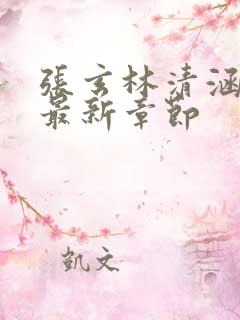 張玄林清涵
最新章節
凱文